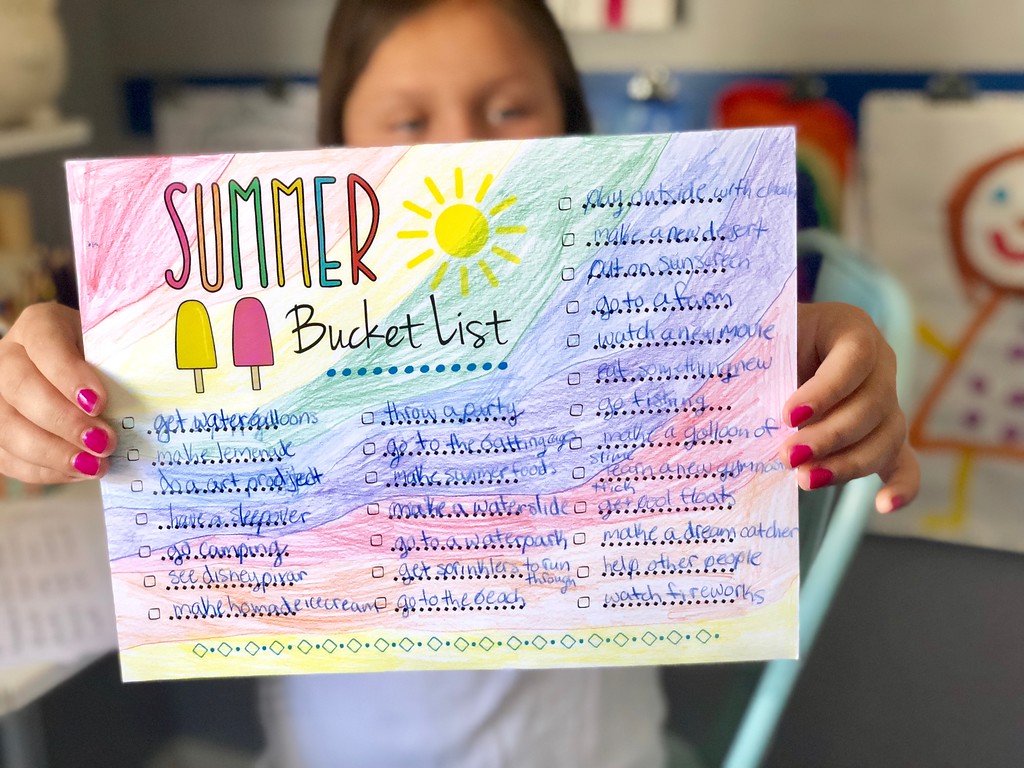 SUMMER
Bucket List
get water balloons
make lemonade
do a art prodject
have a sleepover
go camping
see disney pixar
make homade ice cream
throw a party
go to the batting cage
make summer foods
make a waterslide
go to a waterpark
get sprinklers to run
through
go to the beach
play outside with
make a new desert
put on sunscreen
go to a farm
watch a new movie
eat something new
go fishing
make a galloon of
slime
learn a new gymnastic
trick
get cool floats
make a dream catcher
help other people
watch fireworks